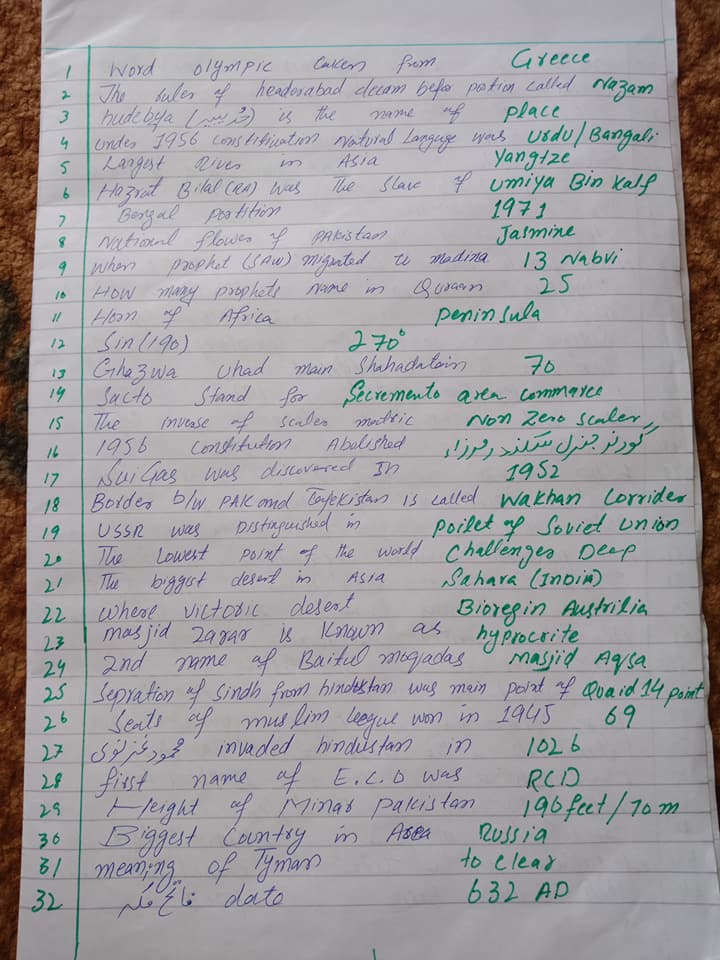 1 Word olympic taken from Greece
2 The ruler of headerabad deccam befor partion called Nazam
3 hudebya (حديبيہ) is the name of place
4 under 1956 constitiuation Natural Language was Urdu/Bangali
5 Largest River in Asia Yangtze
6 Hazrat Bilal (RA) was the slave of umiya Bin Kalf
7 Bengal partition 1971
8 National flower of PAkistan Jasmine
9 when prophet (SAW) migrated to madina 13 Nabvi
10 HOW many prophets name in Quraan 25
11 Horn of Africa peninsula
12 Sin(190) 270°
13 Ghazwa uhad main Shahadatain 70
14 Sacto stand for Secremento area commarce
15 The inverse of scaler matric Non Zero scaler
16 1956 constitution Abolished گورنر جنرل سکندر مرزا
17 Sui Gas was discovered In 1952
18 Border b/w PAK and Tajekistan is called Wakhan Corrider
19 USSR was Distinguished in poilet of Soviet union
20 The Lowest point of the world challenges Deep
21 The biggest desert in Asia Sahara (India)
22 where victoric desert Bioregin Austrilia
23 masjid Zarar is known as hyprocrite
24 2nd name of Baitul moqadas masjid Aqsa
25 Sepration of Sindh from hindustan was main point of Quaid 14 point
26 Seats of muslim league won in 1945 69
27 محمود غزنوی invaded hindustan in 1026
28 first name of E.C.O was RCD
29 Height of Minar pakistan 196 feet/70m
30 Biggest Country in Area Russia
31 meaning of Tymam to clear
32 فاتح مکہ date 632 AD